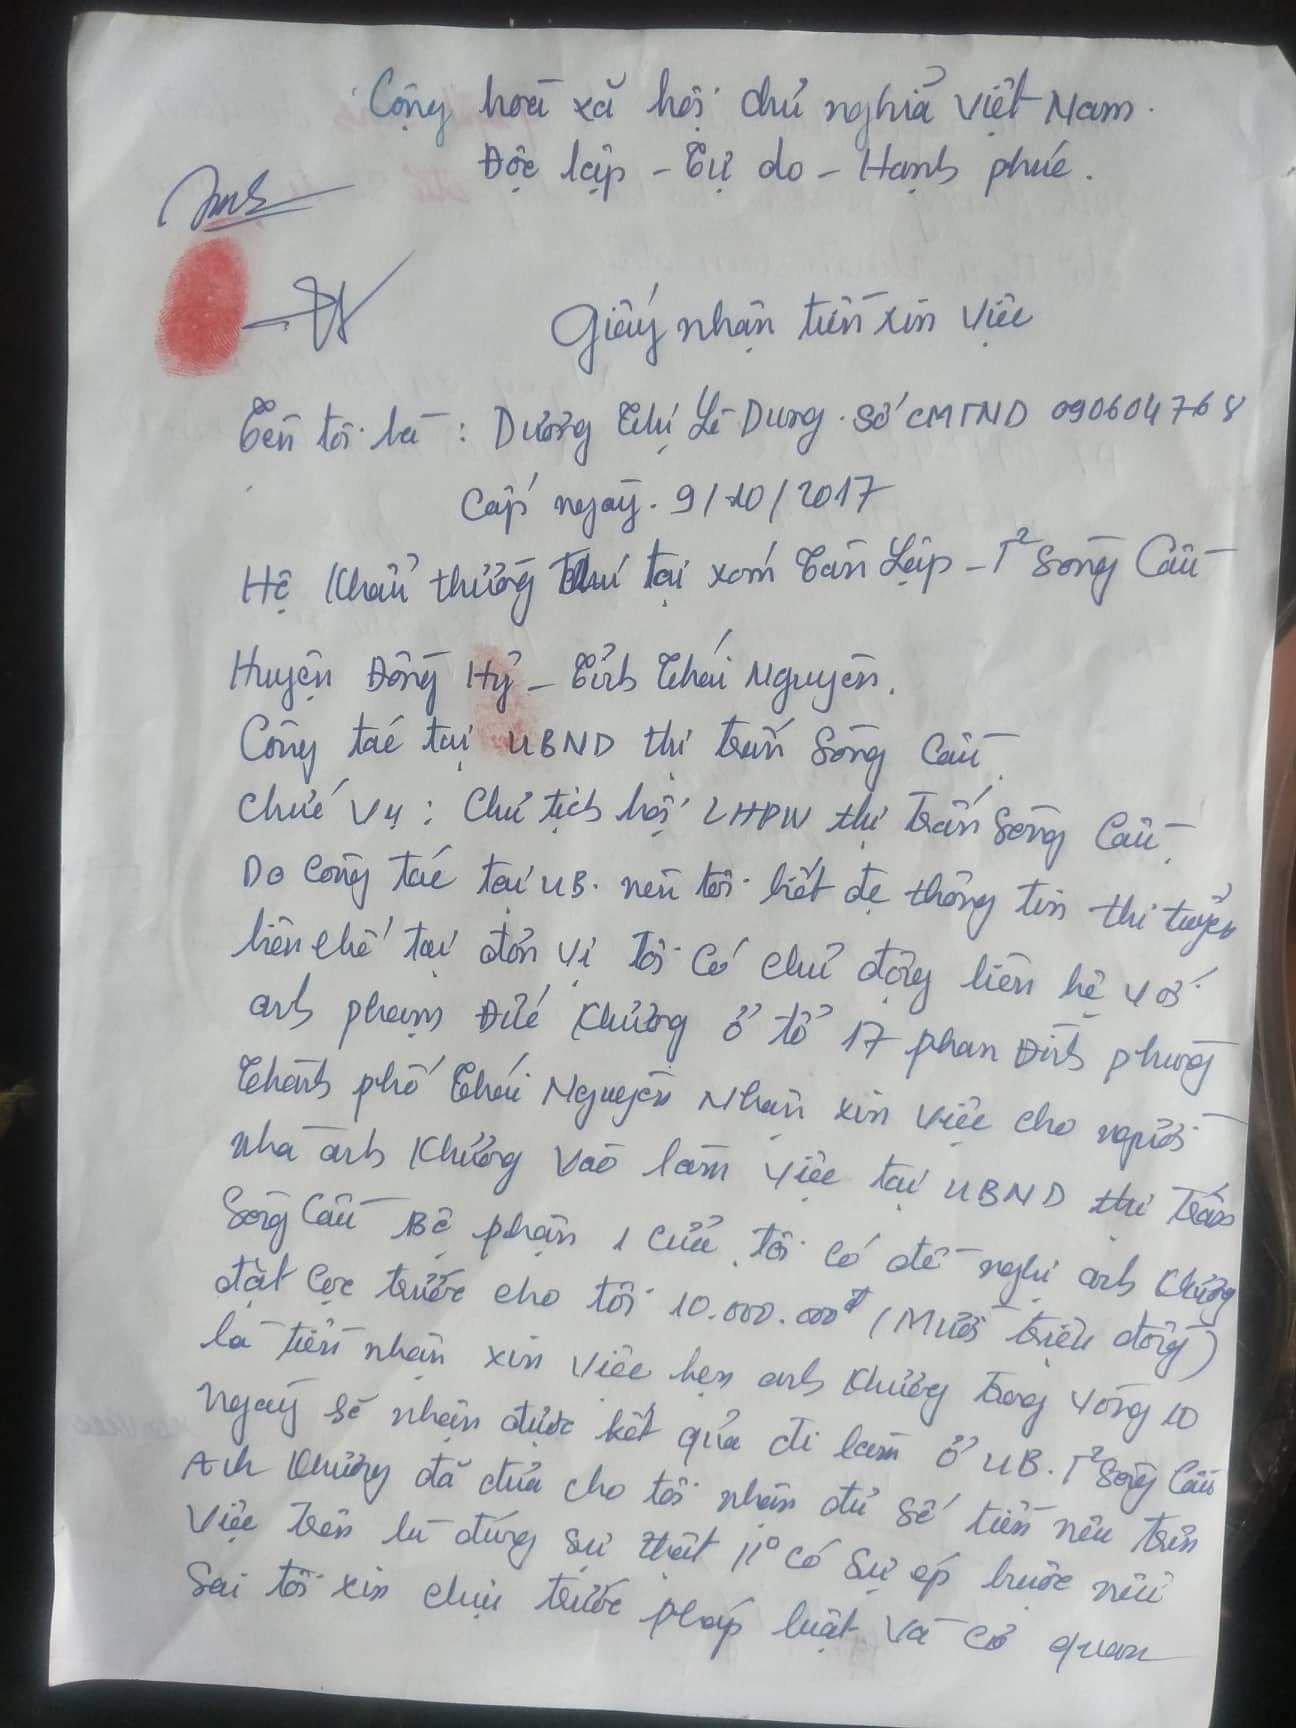 Cộng hoà xã hội chủ nghĩa Việt Nam.
Độc lập - Tự do - Hạnh phúc.
Giấy nhận tiền xin việc
Tên tôi là: Dương Thị Lê Dung. Số CMTND 090604768
Cấp ngày. 9/10/2017
Hộ khẩu thường Thú tại xóm Tân Lập - T² Sông Cầu
Huyện Đồng Hỷ - Tỉnh Thái Nguyên.
Công tác tại UBND thị trấn Sông Cầu.
Chức vụ: Chủ tịch hội LHPN thị trấn Sông Cầu.
Do công tác tại UB. nên tôi biết đc thông tin thi tuyển
biên chế tại đơn vị tôi có chủ động liên hệ với
anh Phạm Đức Khương ở tổ 17 phan Đình phùng
Thành phố Thái Nguyên Nhận xin việc cho người
nhà anh Khương vào làm việc tại UBND thị trấn
Sông Cầu Bộ phận 1 cửa tôi có đề nghị anh Khương
đặt cọc trước cho tôi 10.000.000đ (Mười triệu đồng)
là tiền nhận xin việc hẹn anh Khương trong vòng 10
ngày sẽ nhận được kết quả đi làm ở UB. T² Sông Cầu
Anh Khương đã đưa cho tôi nhận đủ số tiền nêu trên
Việc trên là đúng sự thật có sự ép buộc nếu
Sai tôi xin chịu trước pháp luật và cơ quan